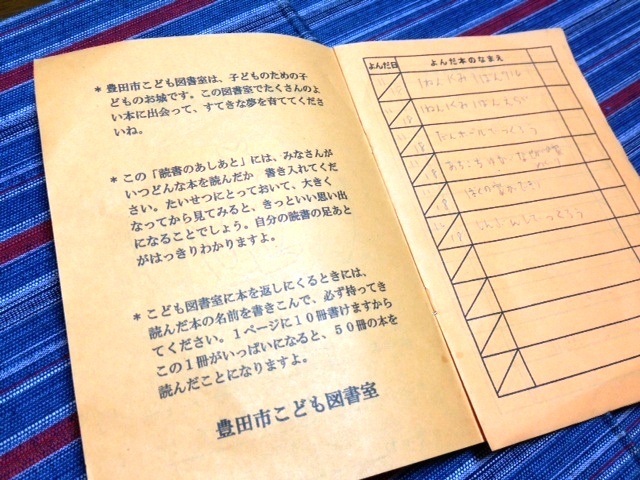 * 豊田市こども図書室は、子どものための子
どものお城です。この図書室でたくさんのよ
い本に出会って、すてきな夢を育ててくださ
いね。
* この「読書のあしあと」には、みなさんが
いつどんな本を読んだか 書き入れてくだ
さい。たいせつにとっておいて、大きく
なってから見てみると、きっといい思い出
になることでしょう。自分の読書の足あと
がはっきりわかりますよ。
* こども図書室に本を返しにくるときには、
読んだ本の名前を書きこんで、必ず持ってき
てください。1ページに10冊書けますから
この1冊がいっぱいになると、50冊の本を
読んだことになりますよ。
豊田市こども図書室
よんだ日 よんだ本のなまえ
18
18 だんボールでつくろう
18
18
18